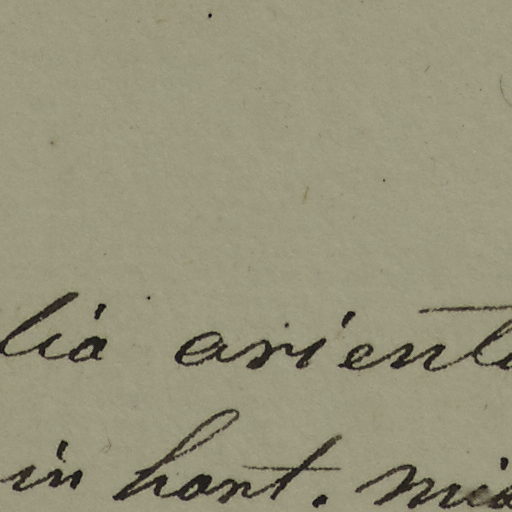 lia orienta
in hort. mid